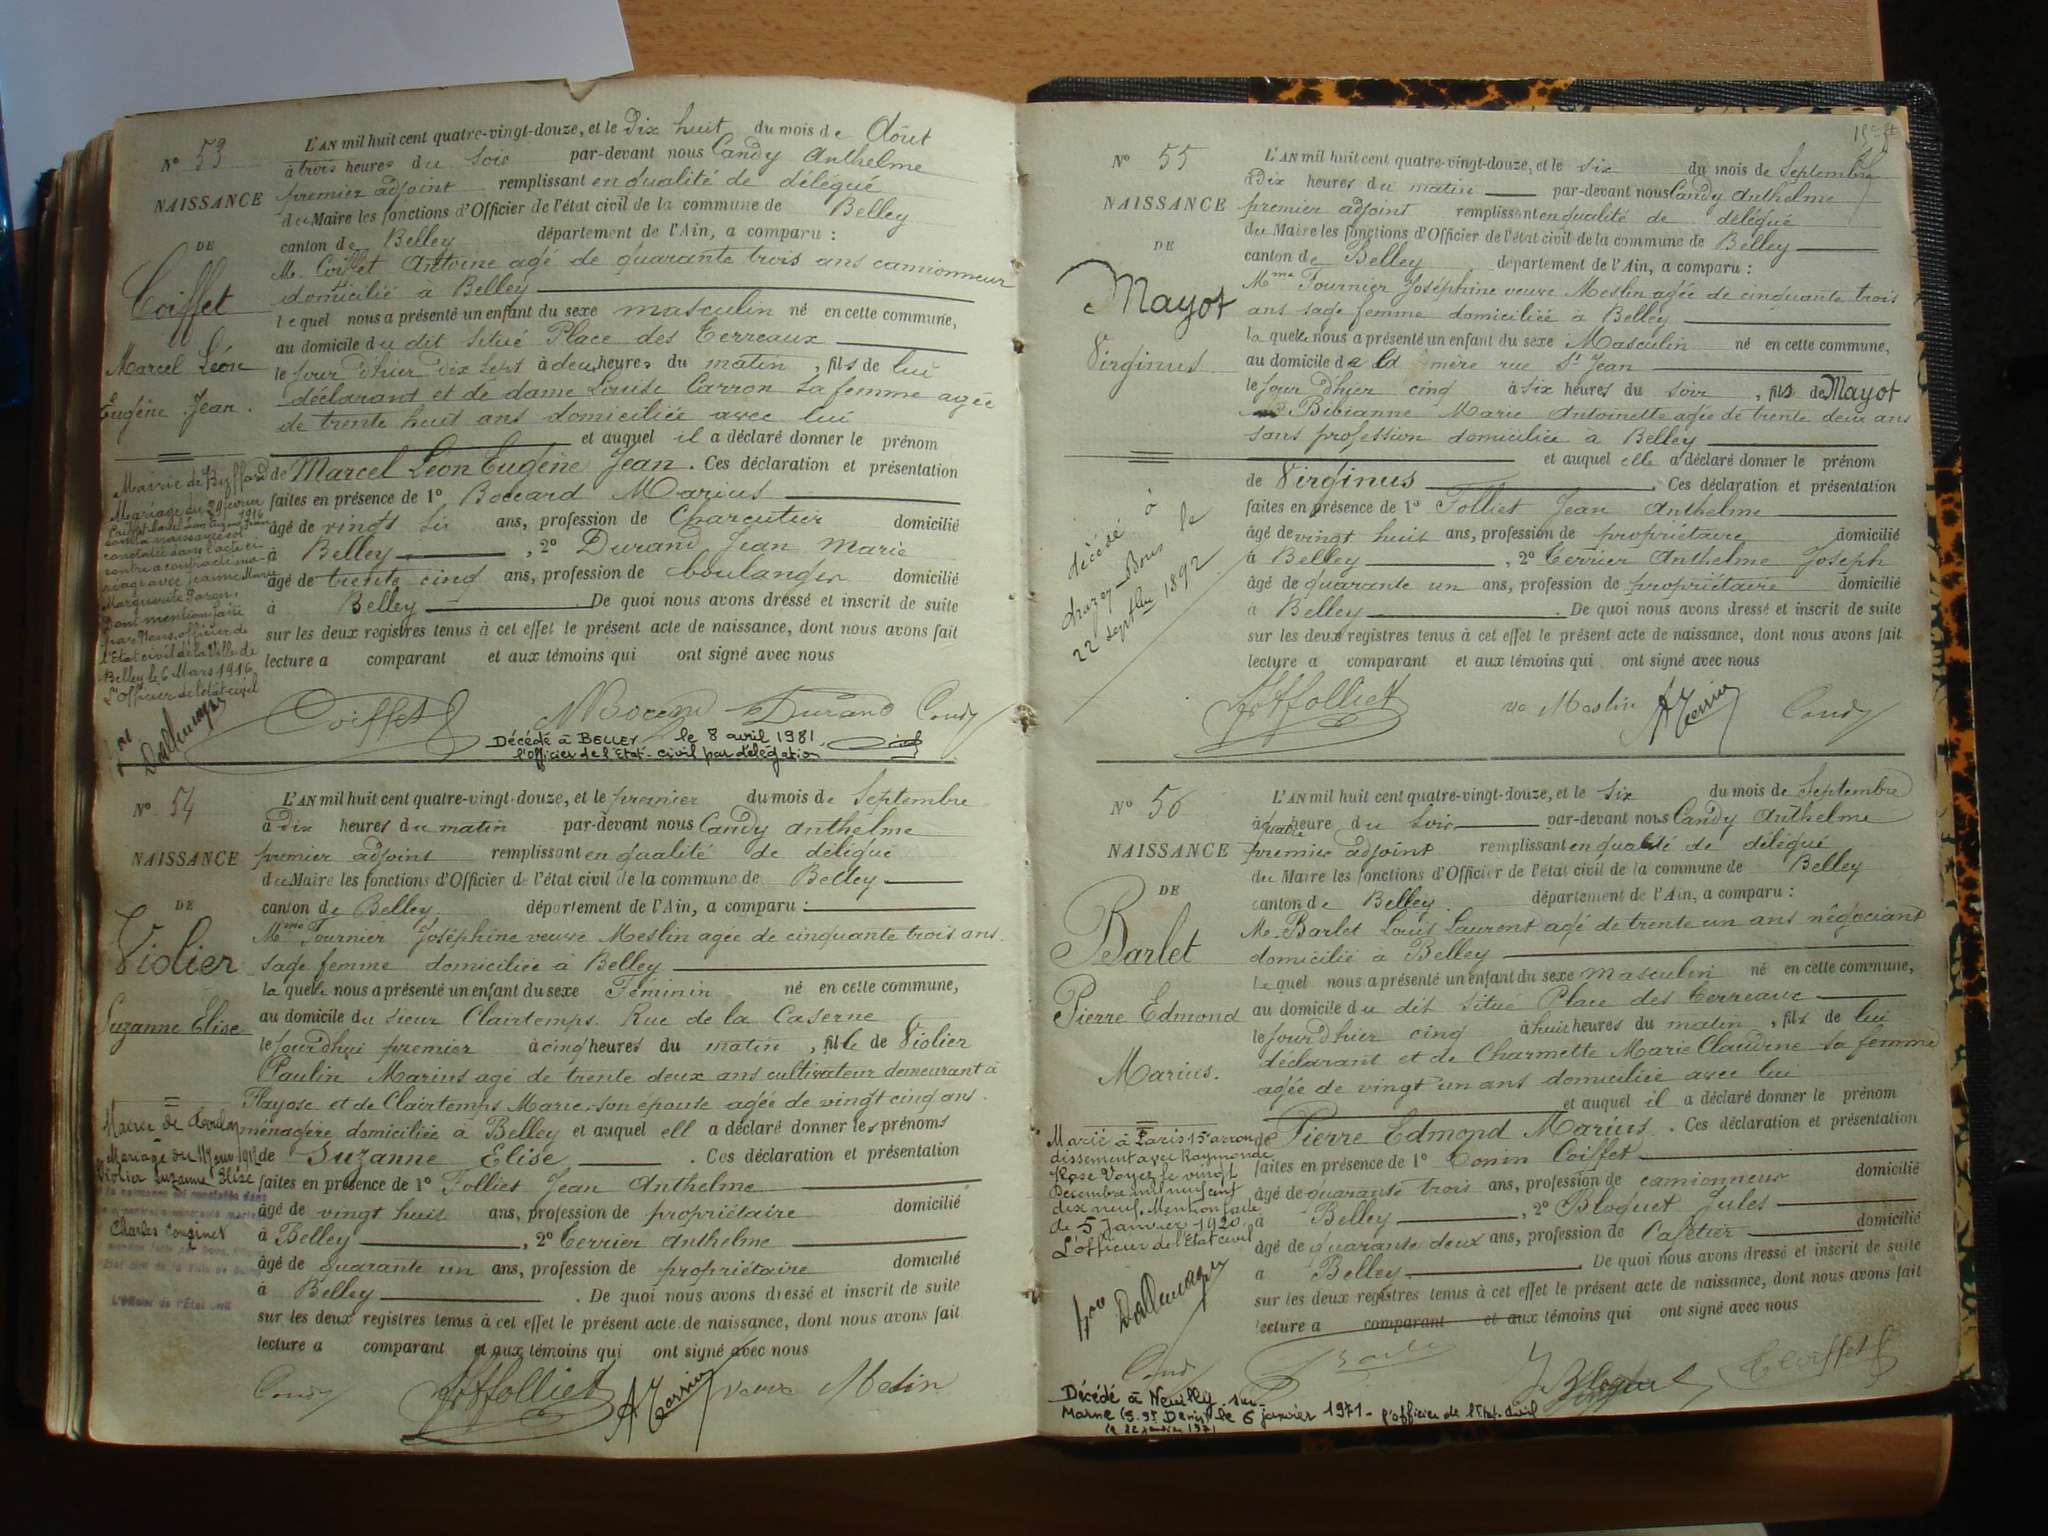 N° 53
NAISSANCE
DE
Coiffet
Marcel Léon
Eugène Jean.
L'AN mil huit cent quatre-vingt-douze, et le dix huit du mois de Août
à trois heures du soir par-devant nous Candy Anthelme
premier adjoint remplissant en qualité de délégué
du Maire les fonctions d'Officier de l'état civil de la commune de Belley
canton de Belley département de l'Ain, a comparu :
M. Coiffet Antoine agé de quarante trois ans camionneur
domicilié à Belley
lequel nous a présenté un enfant du sexe masculin né en cette commune,
au domicile du dit situé Place des Terreaux
le jour d'hier dix sept à deux heures du matin, fils de lui
déclarant et de dame Louise Carron sa femme agée
de trente huit ans domiciliée avec lui
et auquel il a déclaré donner le prénom
de Marcel Léon Eugène Jean. Ces déclaration et présentation
faites en présence de 1° Boccard Marius
âgé de vingt six ans, profession de Charcutier domicilié
à Belley, 2° Durand Jean Marie
âgé de trente cinq ans, profession de boulanger domicilié
à Belley De quoi nous avons dressé et inscrit de suite
sur les deux registres tenus à cet effet le présent acte de naissance, dont nous avons fait
lecture a comparant et aux témoins qui ont signé avec nous
Mairie de
Mariage du 29 février
1916
dont la naissance est
constatée dans l'acte ci
contre a contracté ma-
riage avec Jeanne Marie
Marguerite
Dont mention faite
par Nous, officier de
l'Etat civil de la Ville de
Belley le 6 Mars 1916
L'Officier de l'état civil
Coiffet Durand Candy
Décédé à BELLEY le 8 avril 1981
l'officier de l'Etat-civil par délégation
N° 54
NAISSANCE
DE
Violier
Suzanne Elise
L'AN mil huit cent quatre-vingt-douze, et le premier du mois de Septembre
à dix heures du matin par-devant nous Candy Anthelme
premier adjoint remplissant en qualité de délégué
du Maire les fonctions d'Officier de l'état civil de la commune de Belley
canton de Belley département de l'Ain, a comparu :
Mme Fournier Joséphine veuve Meslin agée de cinquante trois ans.
sage femme domiciliée à Belley
la quelle nous a présenté un enfant du sexe Féminin né en cette commune,
au domicile du sieur Clairtemps. Rue de la Caserne
le jourd'hui premier à cinq heures du matin, fille de Violier
Paulin Marius agé de trente deux ans cultivateur demeurant à
Flayose et de Clairtemps Marie, son épouse agée de vingt cinq ans.
ménagère domiciliée à Belley et auquel ell a déclaré donner les prénoms
de Suzanne Elise. Ces déclaration et présentation
faites en présence de 1° Folliet Jean Anthelme
âgé de vingt huit ans, profession de propriétaire domicilié
à Belley, 2° Terrier Anthelme
âgé de quarante un ans, profession de propriétaire domicilié
à Belley. De quoi nous avons dressé et inscrit de suite
sur les deux registres tenus à cet effet le présent acte de naissance, dont nous avons fait
lecture a comparant et aux témoins qui ont signé avec nous
Mairie de
Mariage du
Violier Suzanne Elise
Charles
L'Officier de l'État civil
Candy Folliet A Terrier veuve Meslin
N° 55
NAISSANCE
DE
Mayot
Virginus
L'AN mil huit cent quatre-vingt-douze, et le six du mois de Septembre
à dix heures du matin par-devant nous Candy Anthelme
premier adjoint remplissant en qualité de délégué
du Maire les fonctions d'Officier de l'état civil de la commune de Belley
canton de Belley département de l'Ain, a comparu :
Mme Fournier Joséphine veuve Meslin agée de cinquante trois
ans sage femme domiciliée à Belley
la quelle nous a présenté un enfant du sexe Masculin né en cette commune,
au domicile de la mère rue St Jean
le jour d'hier cinq à six heures du soir, fils de Mayot
Bibianne Marie Antoinette agée de trente deux ans
sans profession domiciliée à Belley
et auquel elle a déclaré donner le prénom
de Virginus. Ces déclaration et présentation
faites en présence de 1° Folliet Jean Anthelme
âgé de vingt huit ans, profession de propriétaire domicilié
à Belley, 2° Terrier Anthelme Joseph
âgé de quarante un ans, profession de propriétaire domicilié
à Belley. De quoi nous avons dressé et inscrit de suite
sur les deux registres tenus à cet effet le présent acte de naissance, dont nous avons fait
lecture a comparant et aux témoins qui ont signé avec nous
décédé à
Chazey-Bons le
22 septbre 1892
Folliet ve Meslin A Terrier Candy
N° 56
NAISSANCE
DE
Barlet
Pierre Edmond
Marius.
L'AN mil huit cent quatre-vingt-douze, et le six du mois de Septembre
à quatre heure du soir par-devant nous Candy Anthelme
premier adjoint remplissant en qualité de délégué
du Maire les fonctions d'Officier de l'état civil de la commune de Belley
canton de Belley département de l'Ain, a comparu :
Mr Barlet Louis Laurent agé de trente un ans négociant
domicilié à Belley
lequel nous a présenté un enfant du sexe masculin né en cette commune,
au domicile du dit situé Place des Terreaux
le jour d'hier cinq à huit heures du matin, fils de lui
déclarant et de Charmette Marie Claudine sa femme
agée de vingt un ans domiciliée avec lui
et auquel il a déclaré donner le prénom
de Pierre Edmond Marius. Ces déclaration et présentation
faites en présence de 1° Tonin Coiffet
âgé de quarante trois ans, profession de camionneur domicilié
à Belley, 2° Bloquet Jules
âgé de quarante deux ans, profession de Cafetier domicilié
a Belley. De quoi nous avons dressé et inscrit de suite
sur les deux registres tenus à cet effet le présent acte de naissance, dont nous avons fait
lecture a comparant et aux témoins qui ont signé avec nous
Marié à Paris 15e arron
dissement avec Raymonde
Rose Voyet le vingt
Décembre mil neuf cent
dix neuf. Mention faite
de 5 Janvier 1920
L'officier de l'Etat civil
Candy Barlet J Bloquet Coiffet
Décédé à Neuilly-sur-
Marne (S. St Denis) le 6 janvier 1971 - l'officier de l'Etat-civil
le 22 janvier 1971